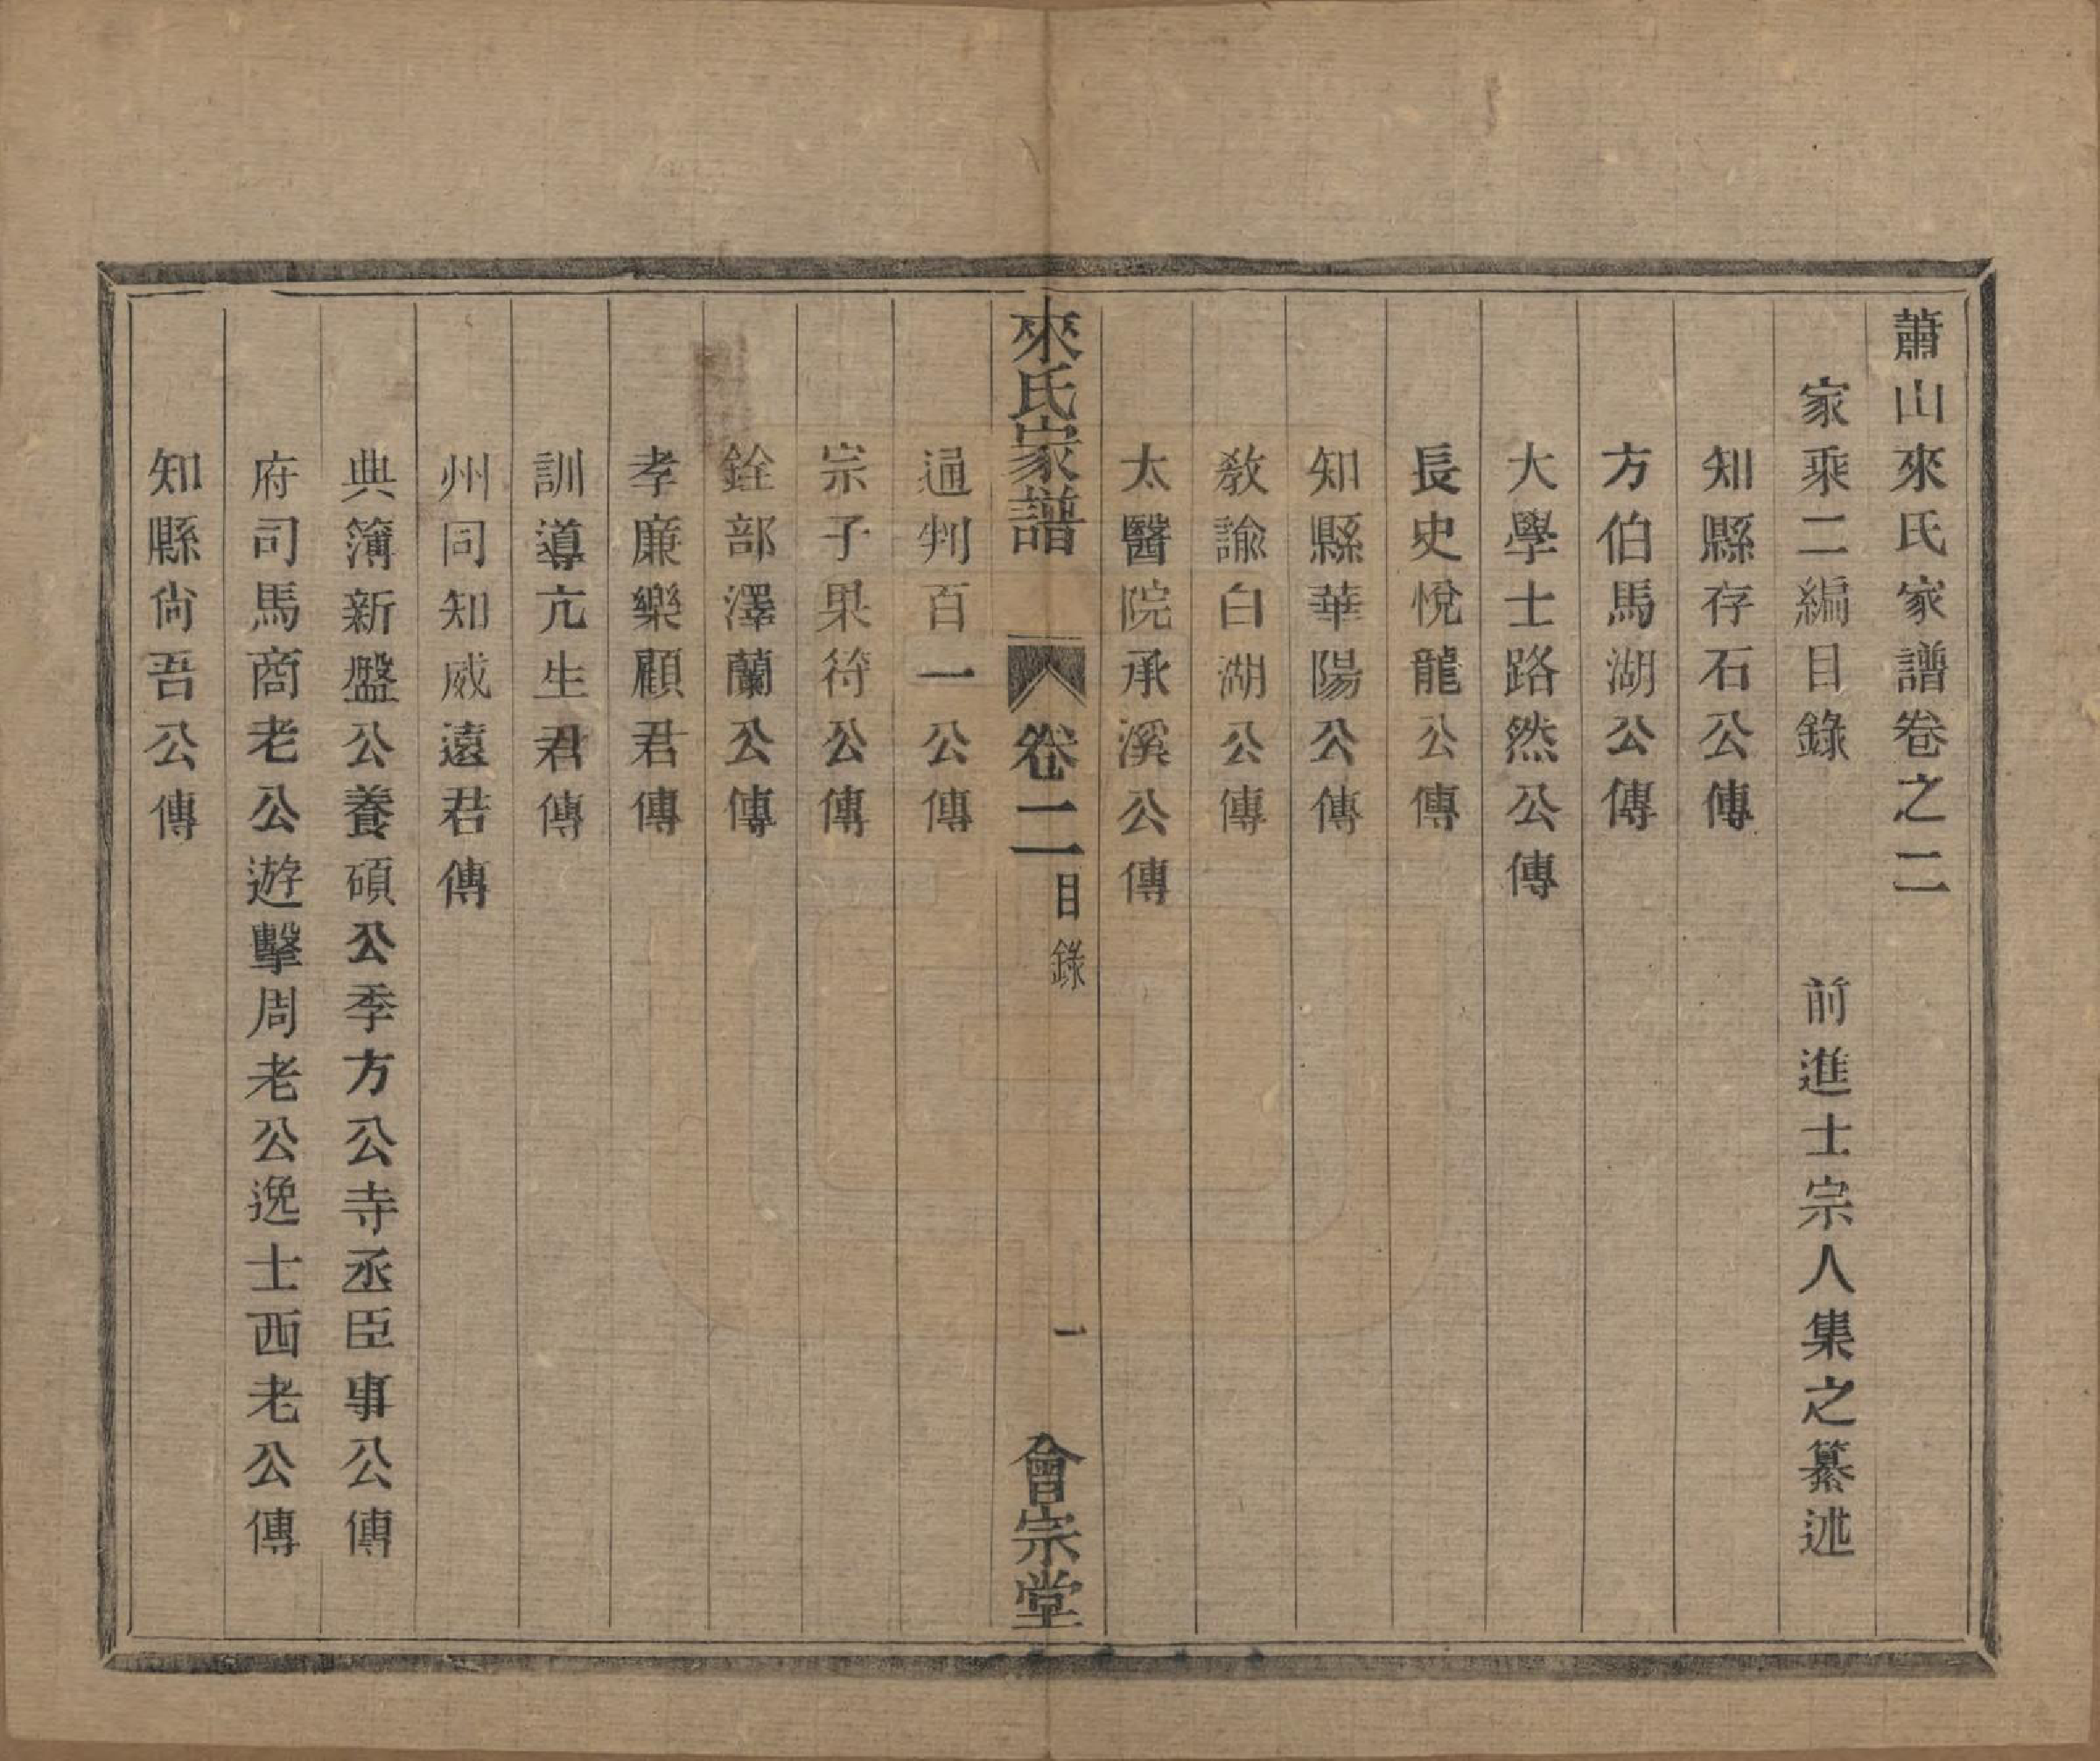 蕭山來氏家譜卷之二
家乘二編目錄 前進士宗人集之纂述
知縣存石公傳
方伯馬湖公傳
大學士路然公傳
長史悅龍公傳
知縣華陽公傳
敎諭白湖公傳
太醫院承溪公傳
來氏家譜 卷二 目錄 一 會宗堂
通判百一公傳
宗子果符公傳
銓部澤蘭公傳
孝廉樂顧君傳
訓導亢生君傳
州同知威遠君傳
典簿新盤公養碩公季方公寺丞臣事公傳
府司馬商老公遊擊周老公逸士西老公傳
知縣尙吾公傳